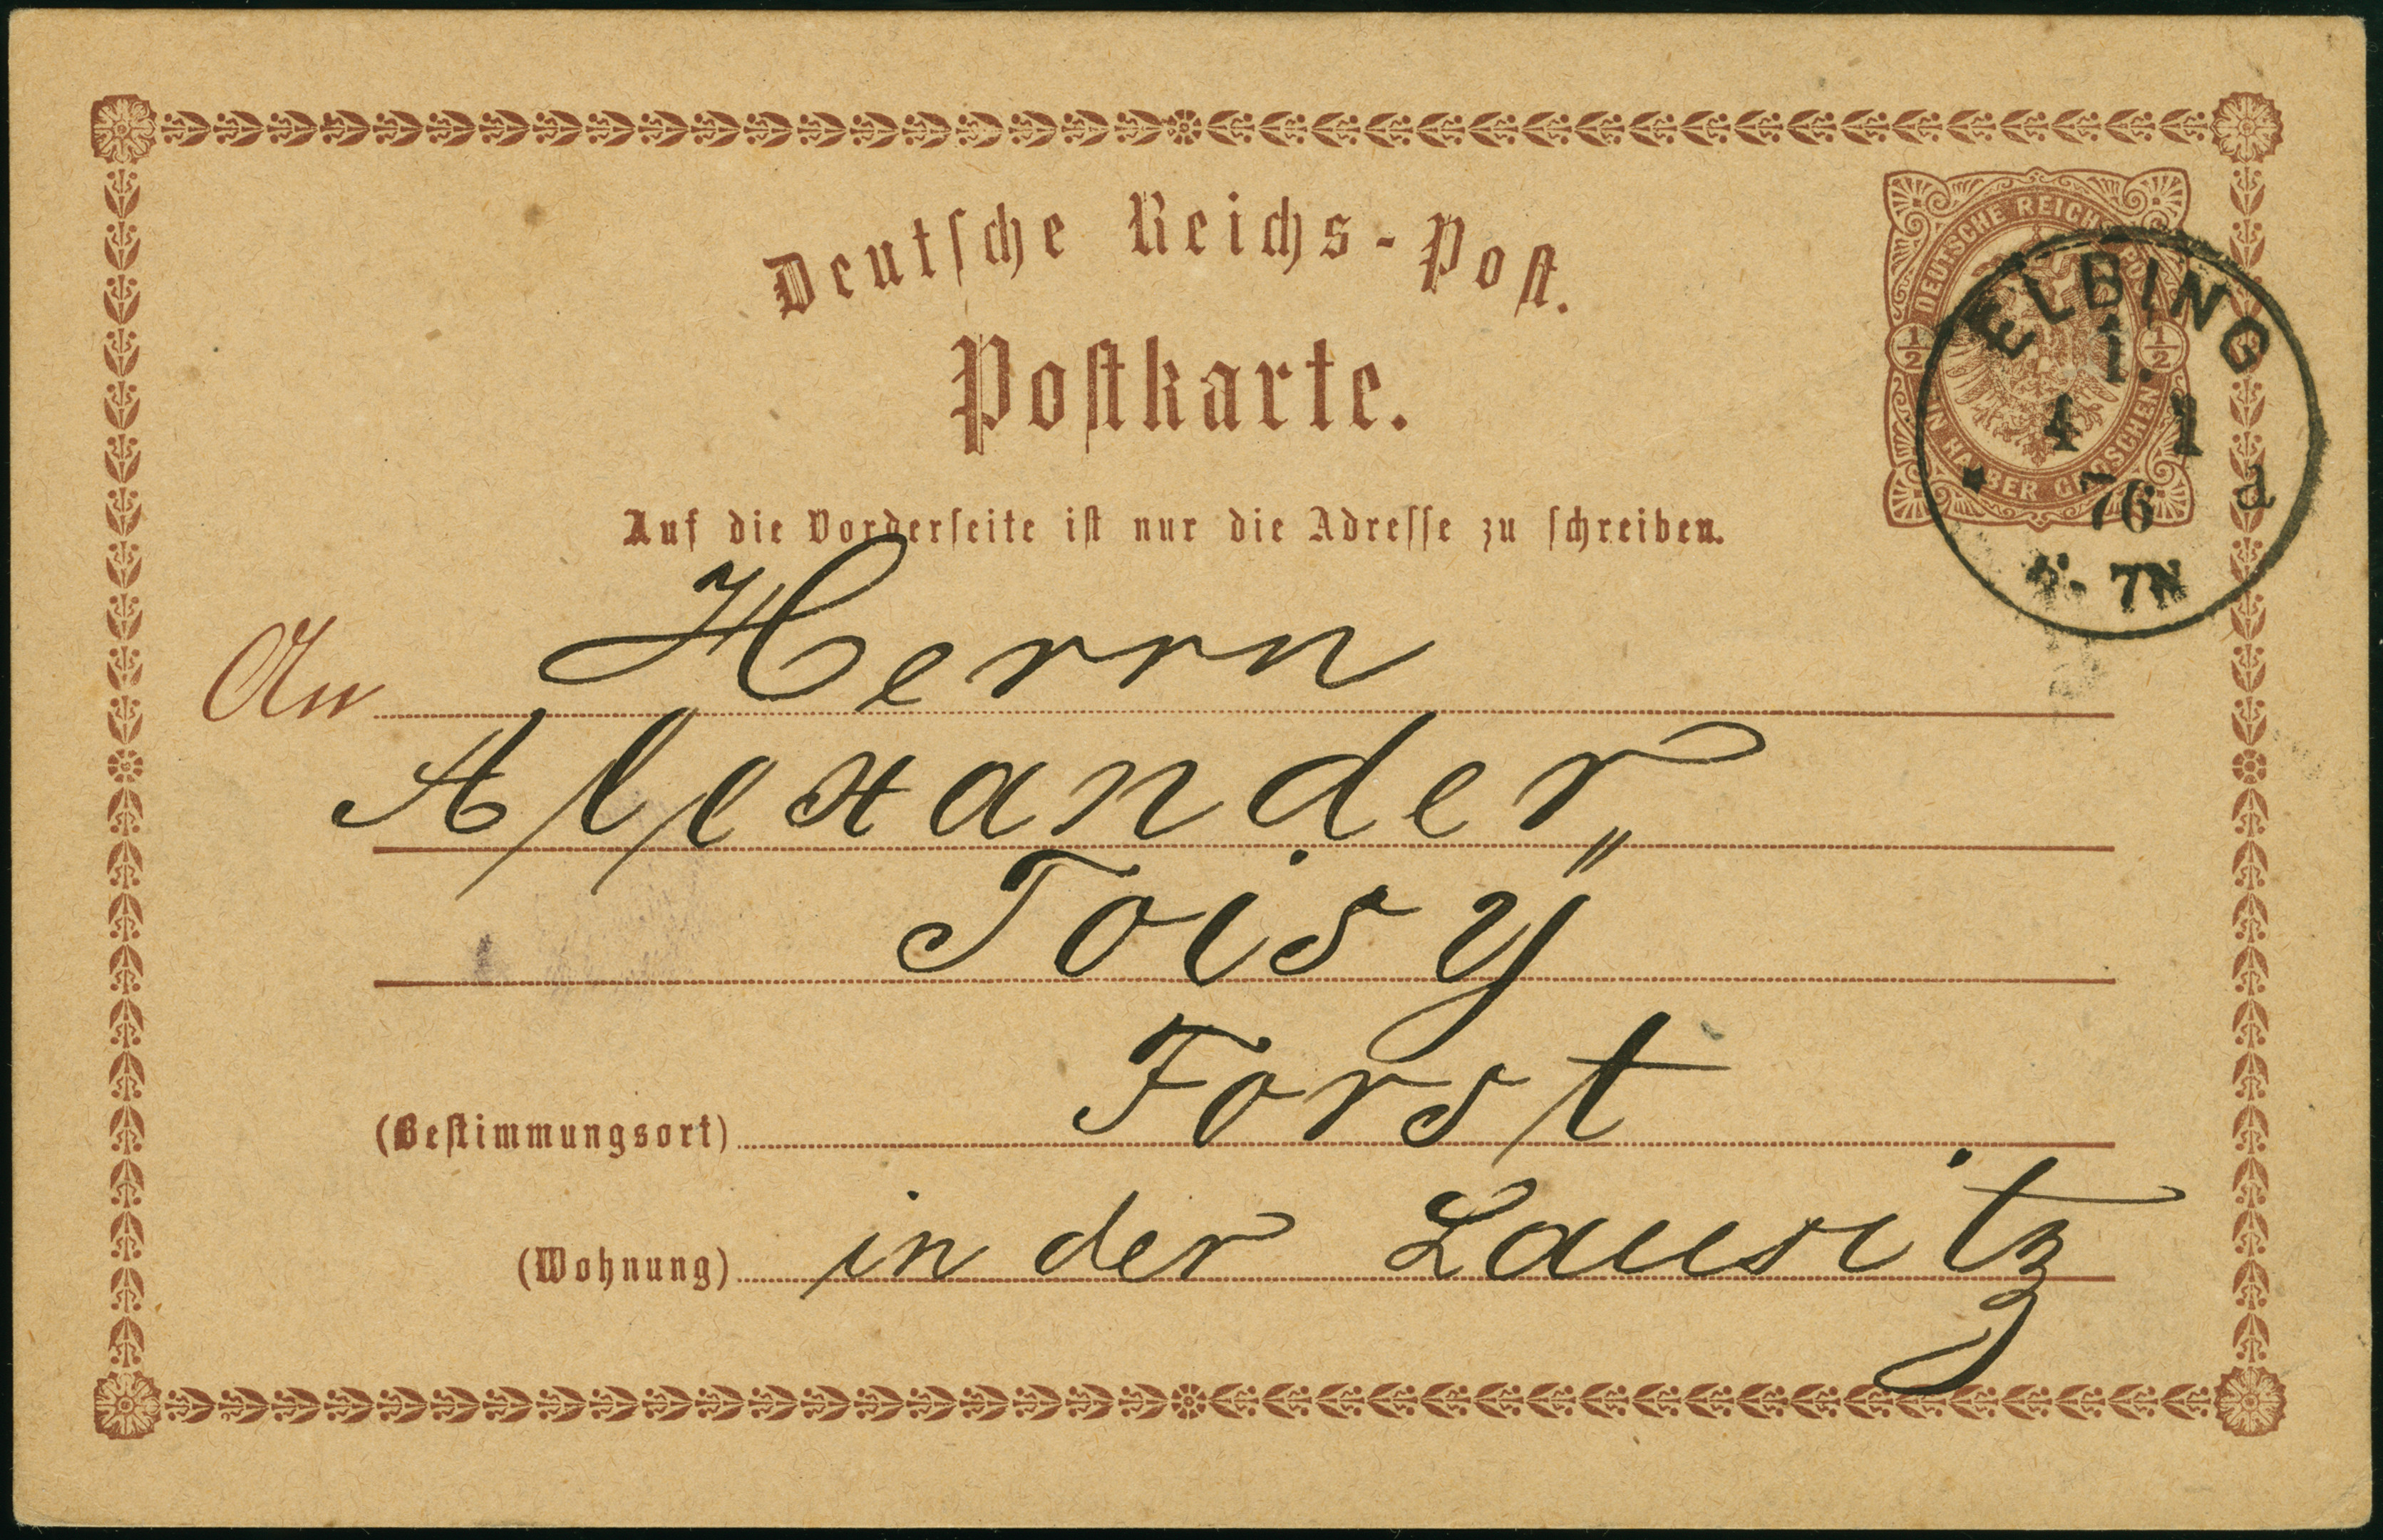 Deutsche Reichs-Post.
Postkarte.
DEUTSCHE REICHS POST
1/2 1/2
EIN HALBER GROSCHEN
ELBING
1.
4 1
76 d
7N
Auf die Vorderseite ist nur die Adresse zu schreiben.
An Herrn
Alexander
Toisÿ
(Bestimmungsort) Forst
(Wohnung) in der Lausitz